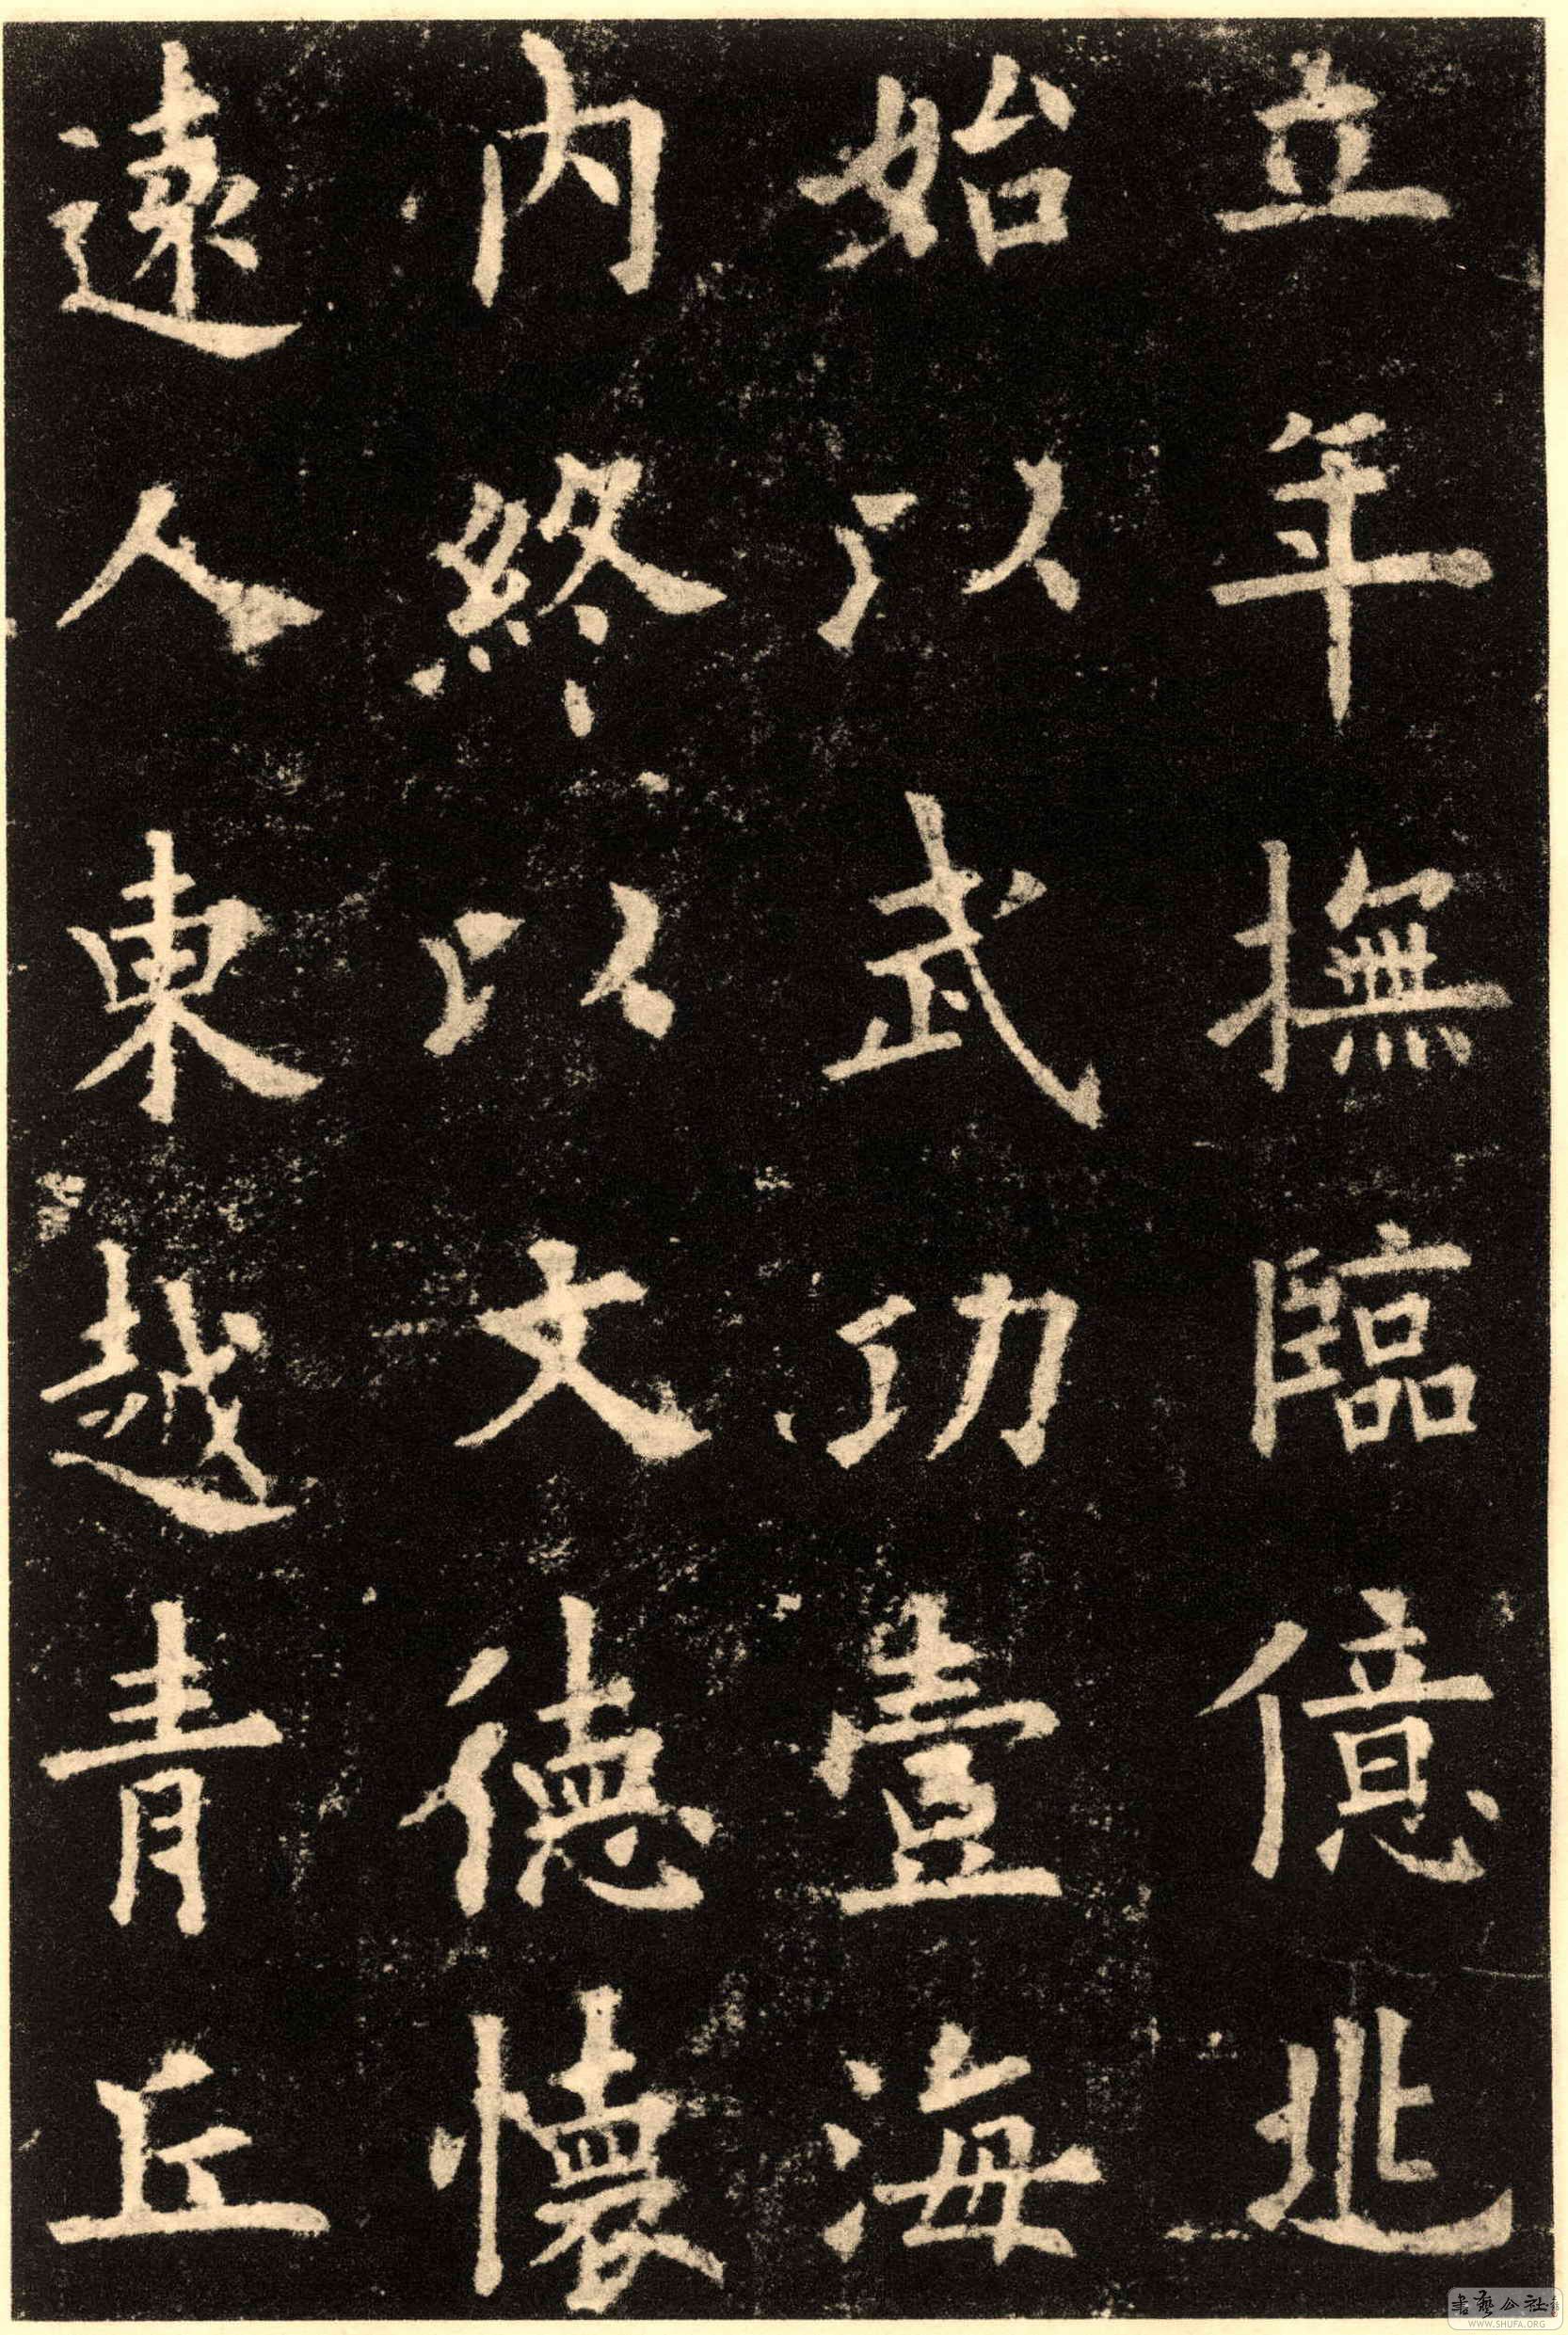 立年撫臨億兆
始以武功壹海
内終以文德懷
遠人東越青丘
書藝公社
WWW.SHUFA.ORG